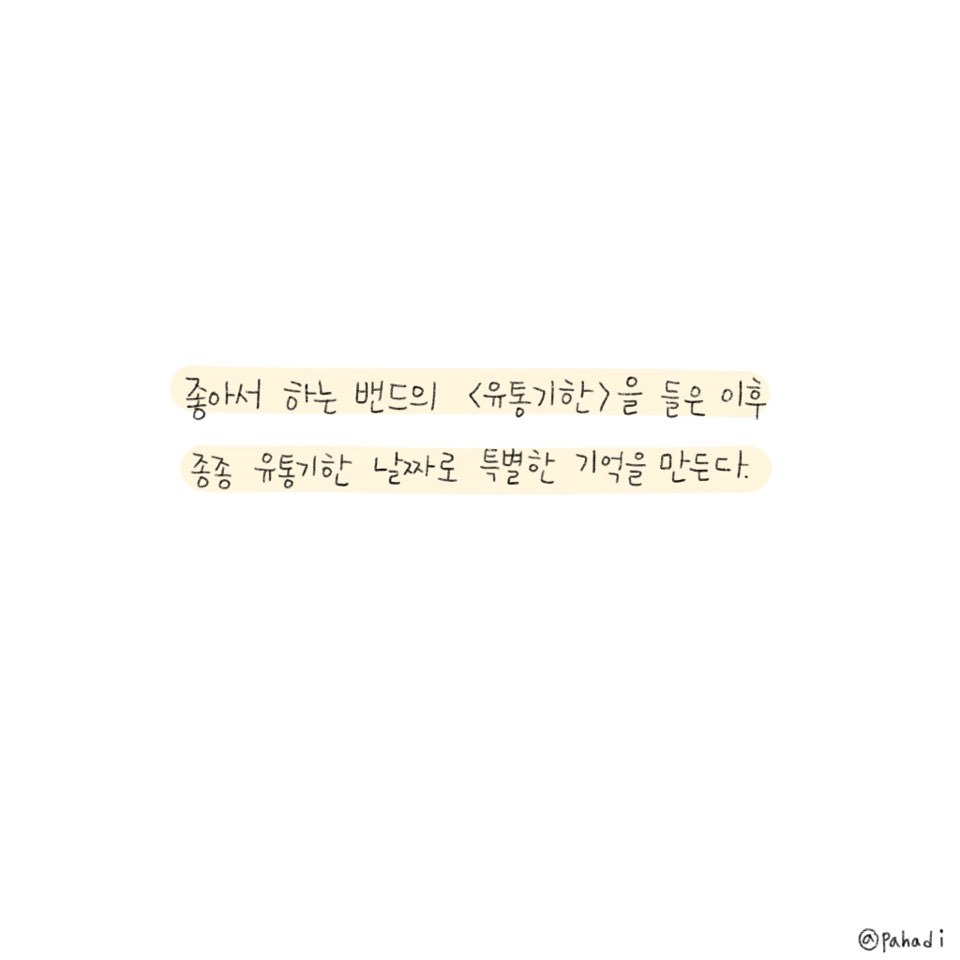 좋아서 하는 밴드의 <유통기한>을 들은 이후
종종 유통기한 날짜로 특별한 기억을 만든다.
@pahadi